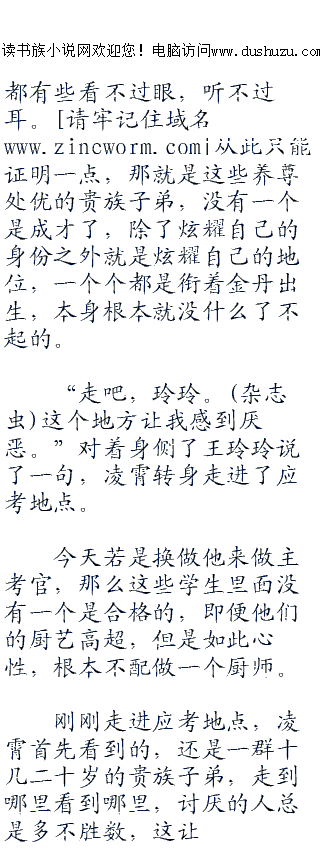 读书族小说网欢迎您！电脑访问www.dushuzu.com
都有些看不过眼，听不过
耳。[请牢记住域名
www.zincworm.com|从此只能
证明一点，那就是这些养尊
处优的贵族子弟，没有一个
是成才了，除了炫耀自己的
身份之外就是炫耀自己的地
位，一个个都是衔着金丹出
生，本身根本就没什么了不
起的。
“走吧，玲玲。(杂志
虫)这个地方让我感到厌
恶。”对着身侧了王玲玲说
了一句，凌霄转身走进了应
考地点。
今天若是换做他来做主
考官，那么这些学生里面没
有一个是合格的，即便他们
的厨艺高超，但是如此心
性，根本不配做一个厨师。
刚刚走进应考地点，凌
霄首先看到的，还是一群十
几二十岁的贵族子弟，走到
哪里看到哪里，讨厌的人总
是多不胜数，这让